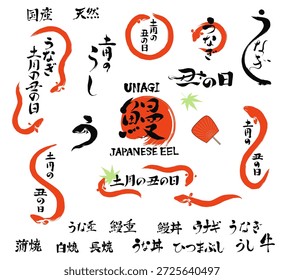 国産 天然
うなぎ
土用の丑の日
土用の
うし
土用の
丑の日
うなぎ
丑の日
うなぎ
う
UNAGI
鰻
JAPANESE EEL
土用の丑の日
土用の
丑の日
土用の
丑の日
うな重 鰻重 鰻丼 ウナギ うなぎ
蒲焼 白焼 長焼 うな丼 ひつまぶし うし 牛
shutterstock.com · 2725640497